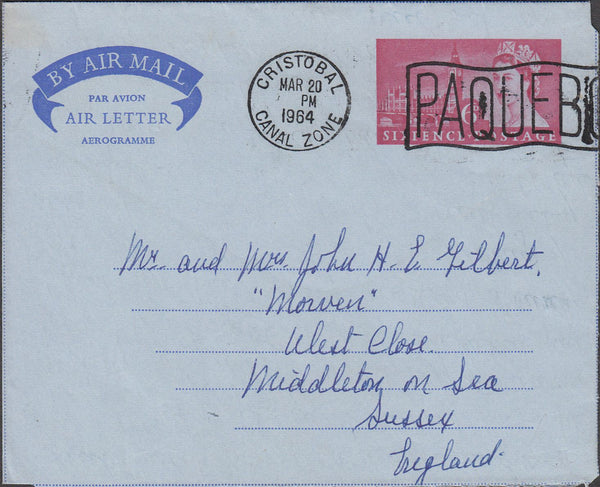 BY AIR MAIL
PAR AVION
AIR LETTER
AEROGRAMME
CRISTOBAL
MAR 20
PM
1964
CANAL ZONE
PAQUEB
SIXPENCE POSTAGE
Mr. and Mrs. John H. E. Gilbert,
"Morven"
West Close
Middleton on Sea
Sussex
England.